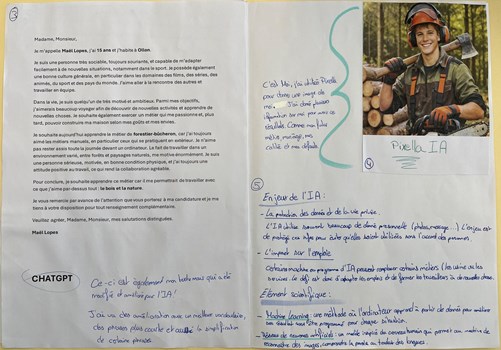 3
Madame, Monsieur,
Je m'appelle Maël Lopes, j'ai 15 ans et j'habite à Ollon.
Je suis une personne très sociable, toujours souriante, et capable de m'adapter
facilement à de nouvelles situations, notamment dans le sport. Je possède également
une bonne culture générale, en particulier dans les domaines des films, des séries, des
animés, du sport et des pays du monde. J'aime aller à la rencontre des autres et
travailler en équipe.
Dans la vie, je suis quelqu'un de très motivé et ambitieux. Parmi mes objectifs,
j'aimerais beaucoup voyager afin de découvrir de nouvelles activités et apprendre de
nouvelles choses. Je souhaite également exercer un métier qui me passionne et, plus
tard, pouvoir construire ma maison selon mes goûts et mes envies.
Je souhaite aujourd'hui apprendre le métier de forestier-bûcheron, car j'ai toujours
aimé les métiers manuels, en particulier ceux qui se pratiquent en extérieur. Je n'aime
pas rester assis toute la journée devant un ordinateur. Le fait de travailler dans un
environnement varié, entre forêts et paysages naturels, me motive énormément. Je suis
une personne sérieuse, motivée, en bonne condition physique, et j'ai toujours une
attitude positive au travail, ce qui rend la collaboration agréable.
Pour conclure, je souhaite apprendre ce métier car il me permettrait de travailler avec
ce que j'aime par-dessus tout : le bois et la nature.
Je vous remercie par avance de l'attention que vous portez à ma candidature et je me
tiens à votre disposition pour tout renseignement complémentaire.
Veuillez agréer, Madame, Monsieur, mes salutations distinguées.
Maël Lopes
CHATGPT
Ce-ci est également mon texte mais qui a été
modifié et amélioré par l'IA!
J'ai vu des amélioration avec un meilleur vocabulaire,
des phrases plus courte et aussi la simplification
de certaine phrases.
C'est Moi, j'ai utilisé Pixella
pour donner une image de
moi. J'ai donné plusieurs
information sur moi pour avoir ce
résultats. Comme mon futur
métier, mon âge, mes
qualité et mon défauts.
Pixella IA
4
5
Enjeux de l'IA :
- La protection des donnés et de la vie privée.
L'IA utilise souvent beaucoup de donné personnelle (photos, message...) L'enjeu est
de protégé ces infos pour éviter qu'elles soient utilisées sans l'accord des personnes.
- L'impact sur l'emploi
Certaine machine ou programme d'IA peuvent remplacer certains métiers
Elément scientifique :
- Machine Learning : une méthode où l'ordinateur apprend à partir de donné pour améliorer
son résultat sans être programmé pour chaque situation.
- Réseau de neurones artificiels : un modèle inspiré du cerveau humain qui permet aux machine de
reconnaître des images, comprendre la parole ou traduire des langues.